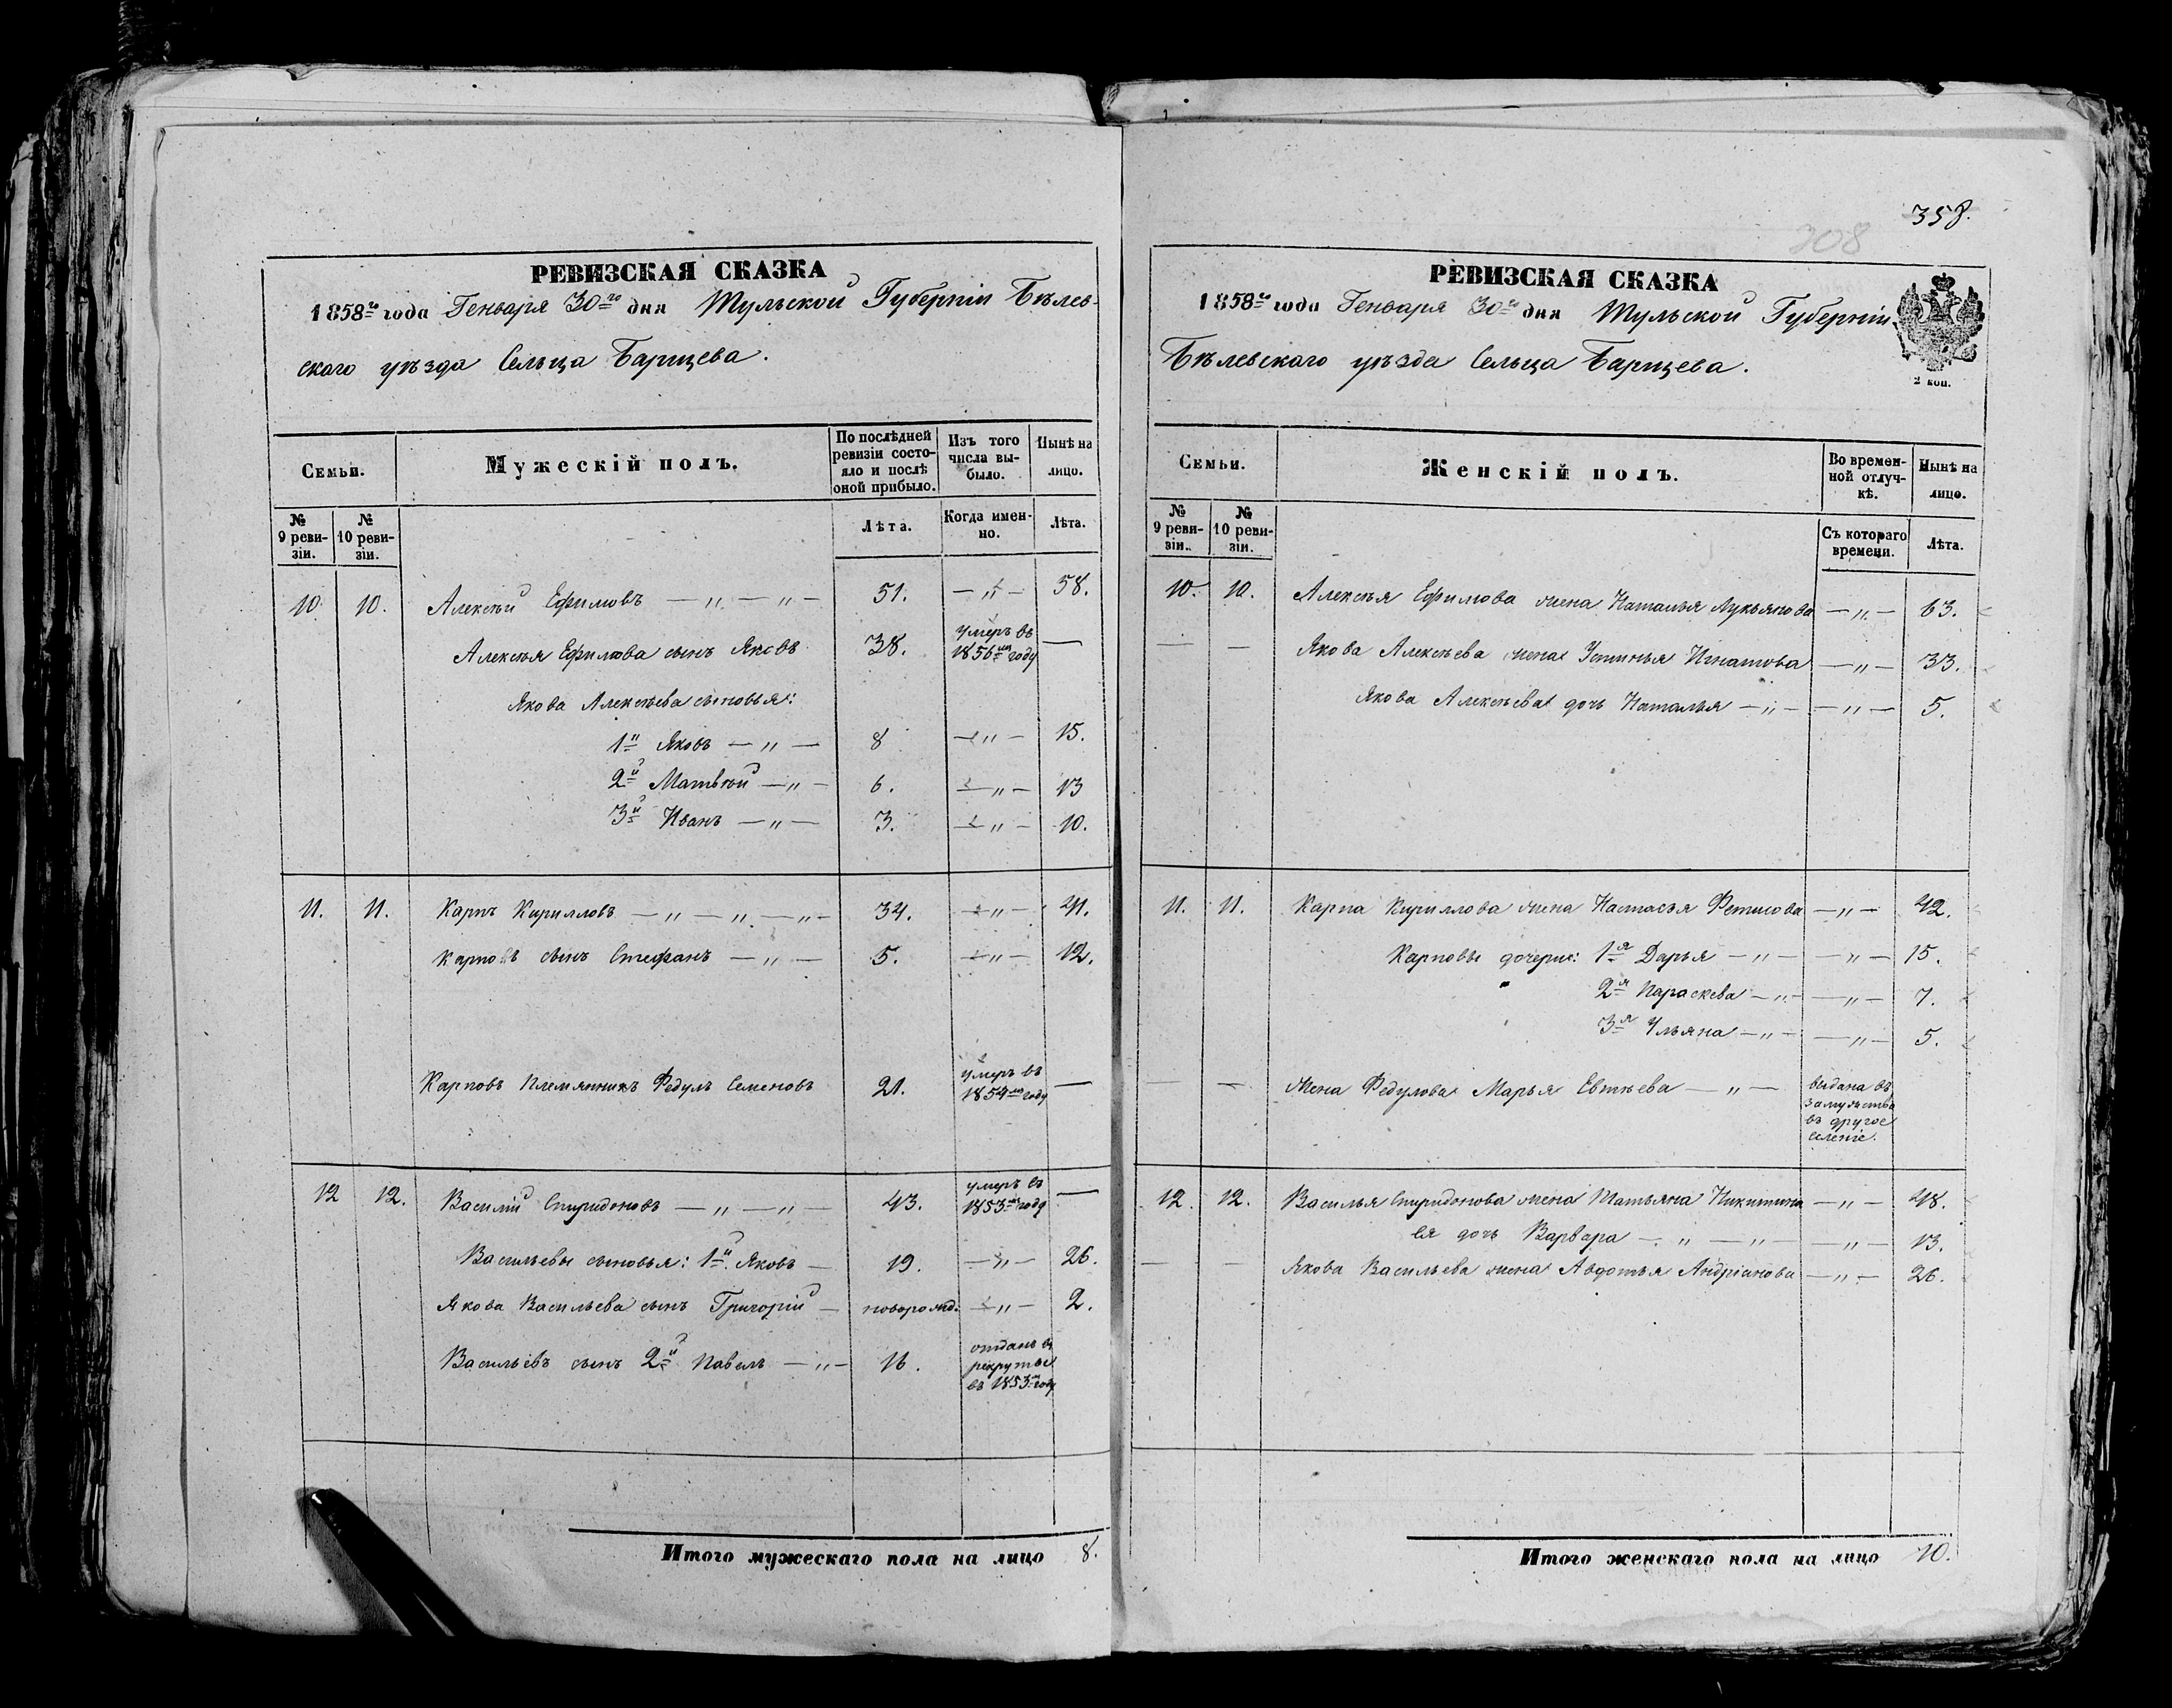 РЕВИЗСКАЯ СКАЗКА
1858го года Генваря 30го дня Тульской Губерніи Бѣлев-
скаго уѣзда Сельца Барищева.
Семьи.
Мужескій полъ.
По послѣдней ревизіи состояло и послѣ оной прибыло.
Изъ того числа выбыло.
Нынѣ на лицо.
№ 9 ревизіи.
№ 10 ревизіи.
Лѣта.
Когда именно.
Лѣта.
10. 10. Алексѣй Ефимовъ — „ — „ — 51. — „ — 58.
Алексѣя Ефимова сынъ Яковъ 38. умеръ въ 1856мъ году —
Якова Алексѣева сыновья:
1й Яковъ — „ — 8 — „ — 15.
2й Матвѣй — „ — 6. — „ — 13
3й Иванъ — „ — 3. — „ — 10.
11. 11. Карпъ Кирилловъ — „ — „ — „ — 34. — „ — 41.
Карповъ сынъ Стефанъ — „ — 5. — „ — 12.
Карповъ племянникъ Федулъ Семеновъ 21. умеръ въ 1854мъ году —
12 12. Василій Спиридоновъ — „ — „ — 43. умеръ въ 1853мъ году —
Васильевы сыновья: 1й Яковъ — 19. — „ — 26.
Якова Васильева сынъ Григорій — новорожд: — „ — 2.
Васильевъ сынъ 2й Павелъ — „ — 16. отданъ въ рекруты въ 1853мъ году
Итого мужескаго пола на лицо 8.
358.
308
РЕВИЗСКАЯ СКАЗКА
1858го года Генваря 30го дня Тульской Губерніи
Бѣлевскаго уѣзда Сельца Барищева.
2 коп.
Семьи.
Женскій полъ.
Во временной отлучкѣ.
Нынѣ на лицо.
№ 9 ревизіи.
№ 10 ревизіи.
Съ котораго времени.
Лѣта.
10. 10. Алексѣя Ефимова жена Наталья Лукьянова — „ — 63.
— — Якова Алексѣева жена Устинья Игнатова — „ — 33.
Якова Алексѣева дочь Наталья — „ — — „ — 5.
11. 11. Карпа Кириллова жена Настасья Фетисова — „ — 42.
Карповы дочери: 1я Дарья — „ — — „ — 15.
2я Параскева — „ — — „ — 7.
3я Ульяна — „ — — „ — 5.
— Жена Федулова Марья Евтѣева — „ — выдана въ замужство въ другое селеніе.
12. 12. Василья Спиридонова жена Татьяна Никитина — „ — 48.
Ея дочь Варвара — „ — „ — — „ — 13.
— — Якова Васильева жена Авдотья Андріанова — „ — 26.
Итого женскаго пола на лицо 10.